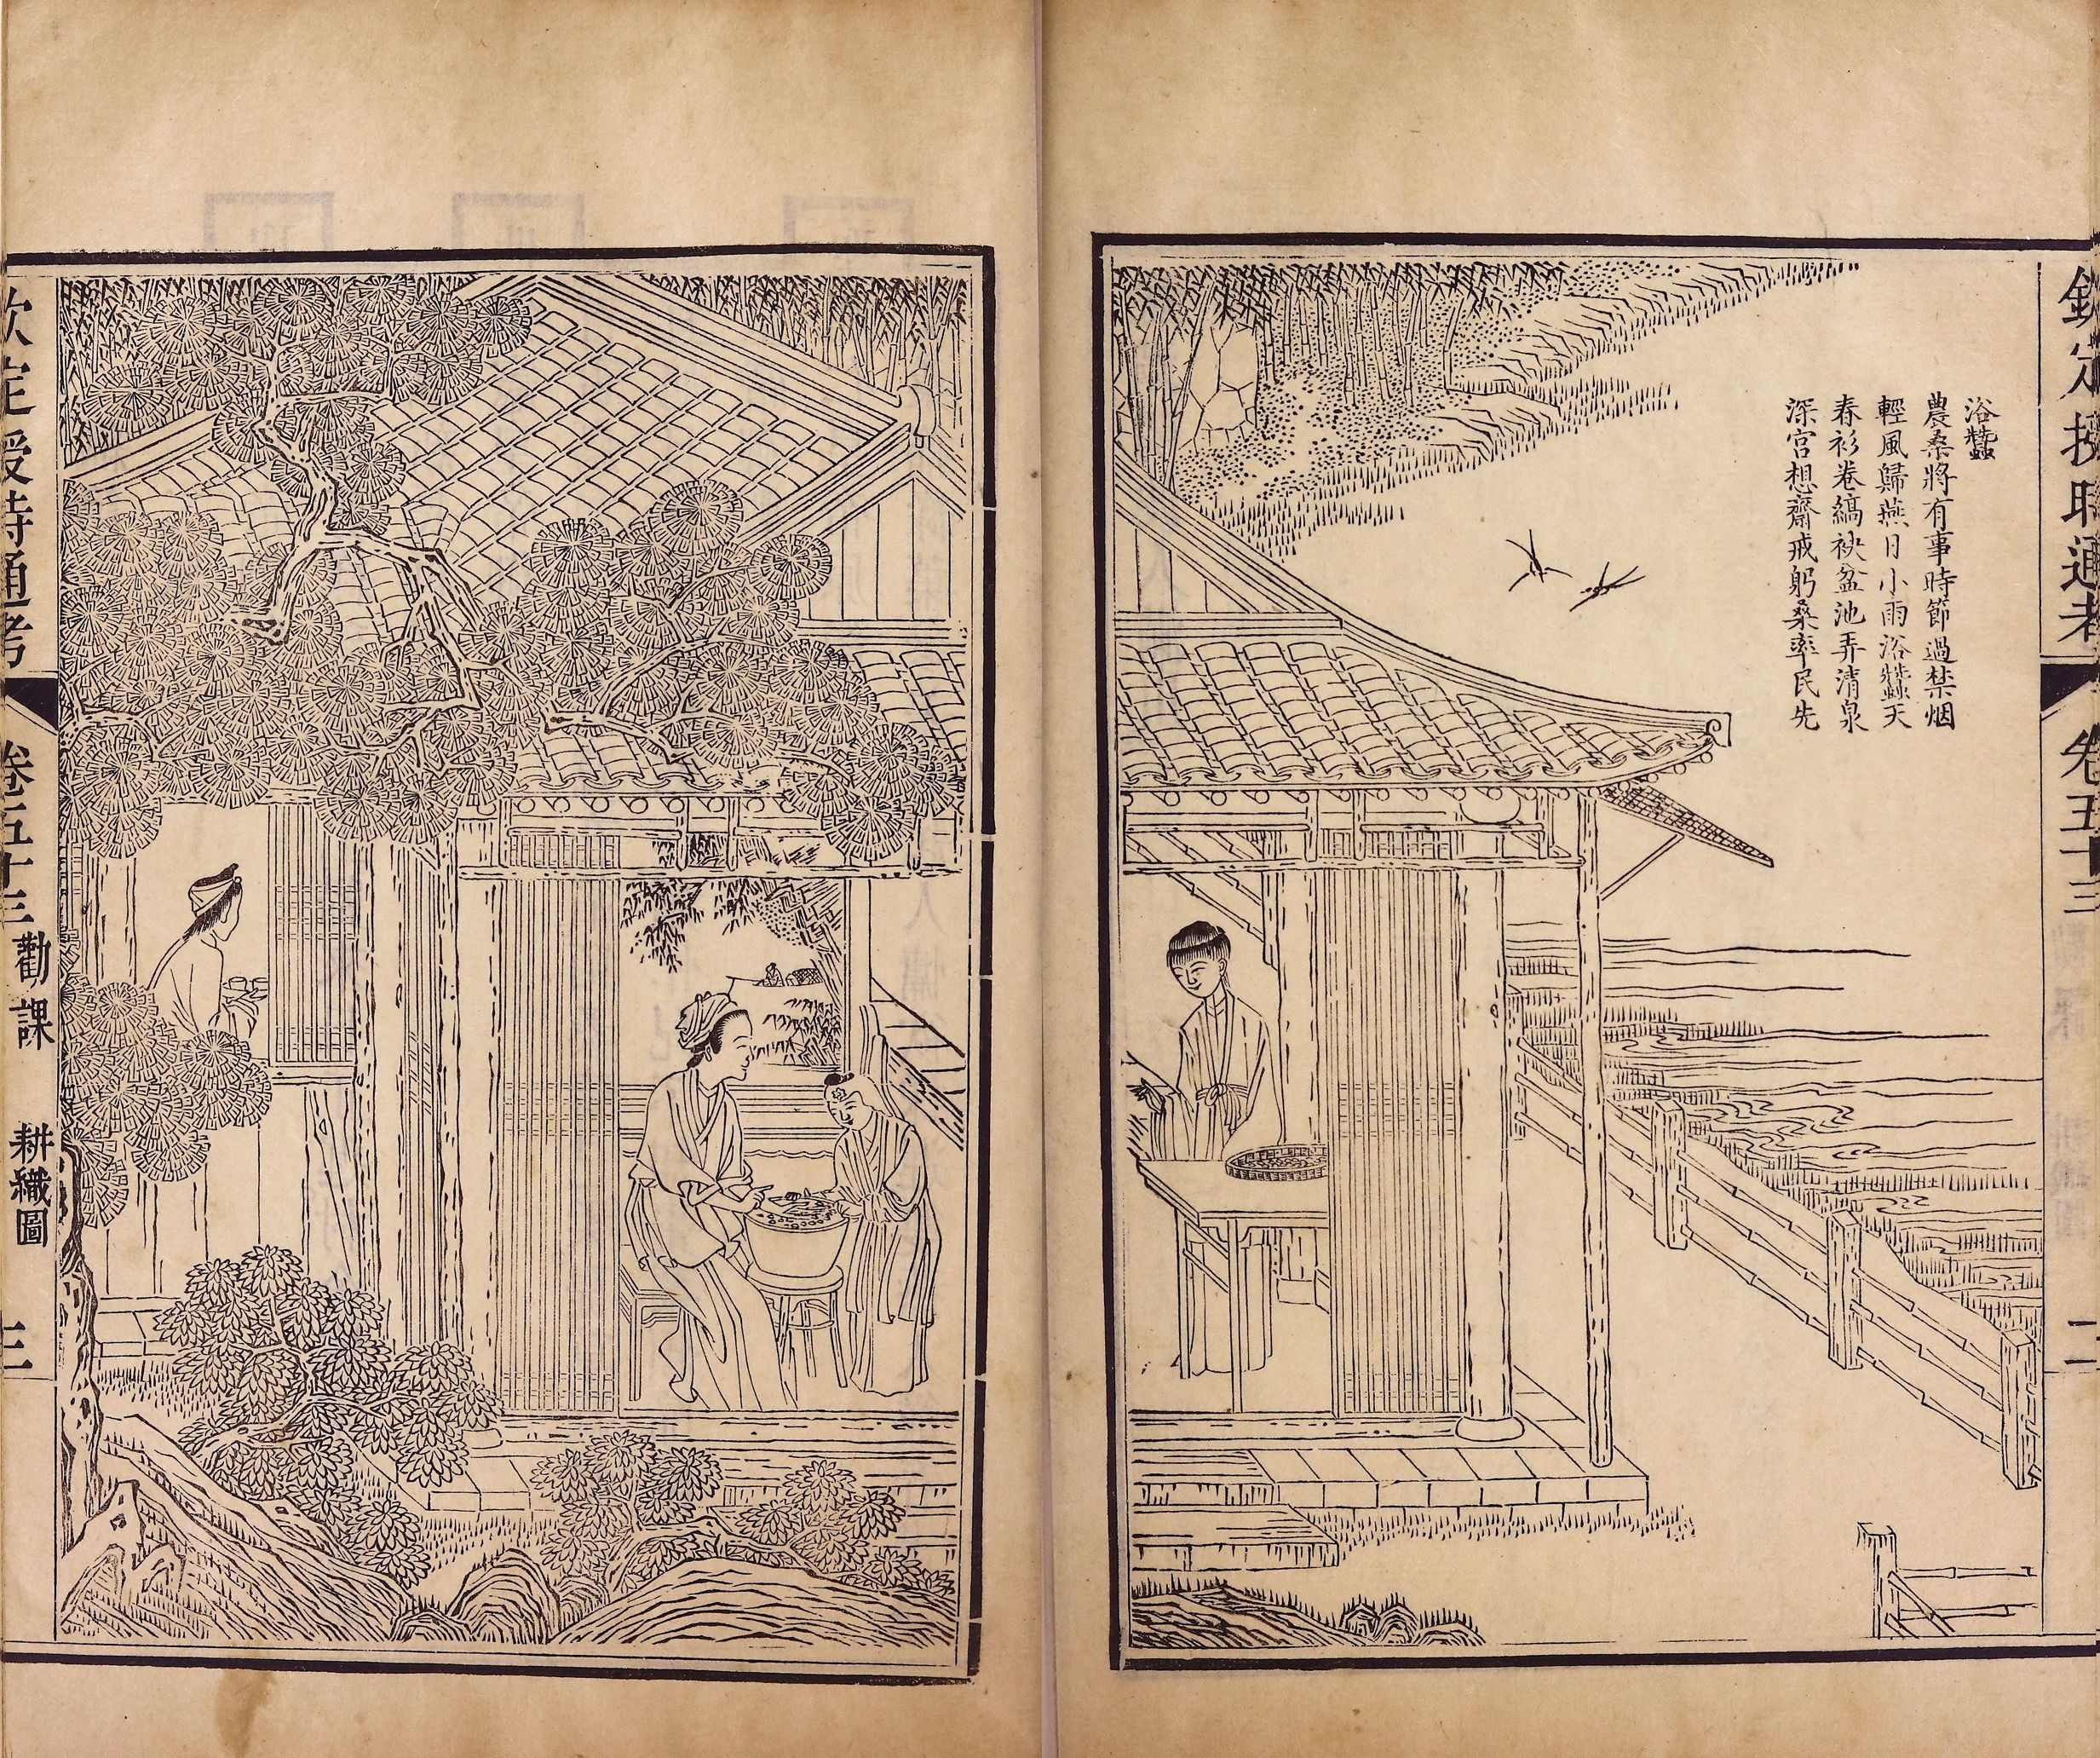 欽定授時通考
卷五十三
二
浴蠶
農桑將有事時節過禁烟
輕風歸燕日小雨浴蠶天
春衫卷縞袂盆池弄清泉
深宮想齋戒躬桑率民先
欽定授時通考
卷五十三
勸課
耕織圖
三